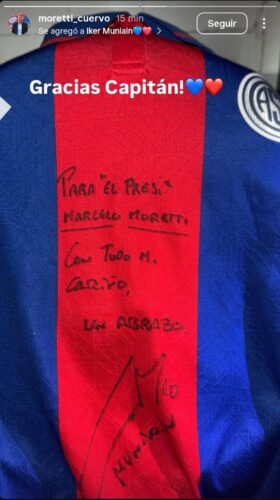 moretti_cuervo 15 min
Se agregó a Iker Muniain💙❤️ >
Seguir
Gracias Capitán!💙❤️
PARA "EL PRESI"
MARCELO MORETTI.
CON TODO MI
CARIÑO,
UN ABRAZO.